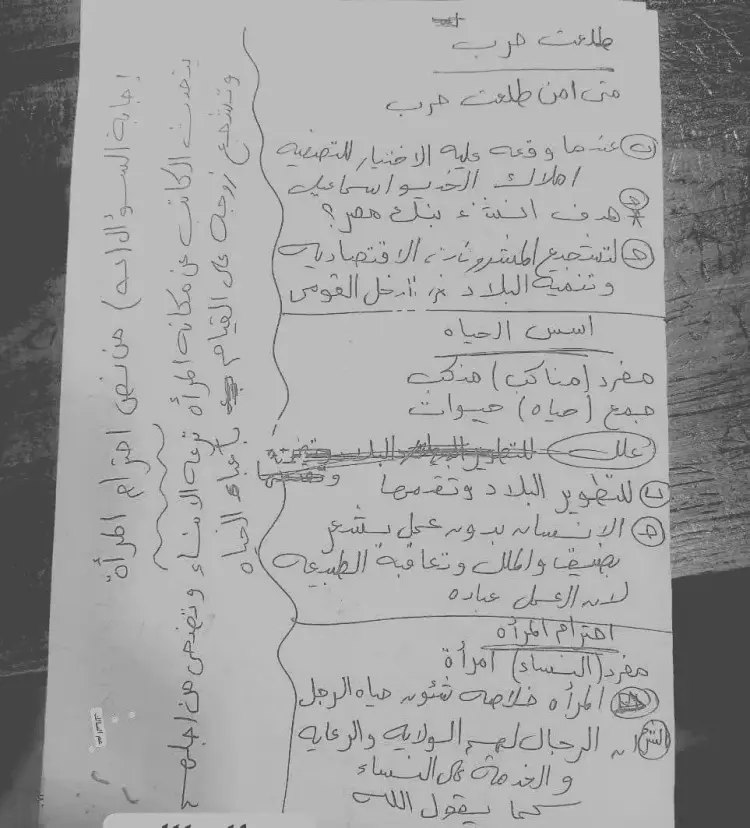 طلعت حرب
متى امن طلعت حرب
ب عندما وقعه عليه الاختيار للتصفيه
املاك الخديو اسماعيل
هدف انشاء بنك مصر؟
هـ لتشجيع المشروعات الاقتصاديه
وتنمية البلاد الدخل القومى
اسس الحياه
مفرد (مناكب) منكب
جمع (حياه) حيوات
علل
ب للتطوير البلاد وتقدمها
هـ الانسان بدون عمل يشعر
بضيف والملل وتعاقبة الطبيعه
لان العمل عباده
احترام المرأه
مفرد (النساء) امرأة
المرأه خلاصه شئون حياه الرجل
ان الرجال لهم الولايه والرعايه
والخدمة على النساء
كما يقول الله
إجابة السؤال (حه) من نص احترام المرأة
يتحدث الكاتب عن مكانه المرأه ترعه الابناء وتضحى من اجلهم
وتشجع زوجه على القيام بأعباء الحياه